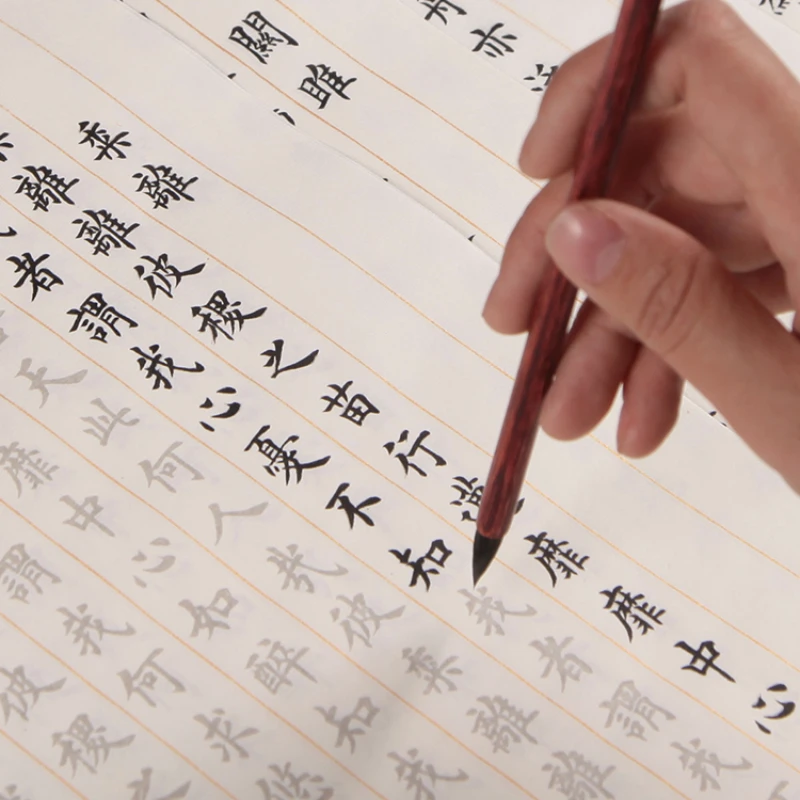 亦
關雎
黍離
離離彼稷之苗行邁靡靡中心
者謂我心憂不知我者謂我
天此何人哉彼黍離離
靡中心如醉知我
謂我何求悠
彼稷之